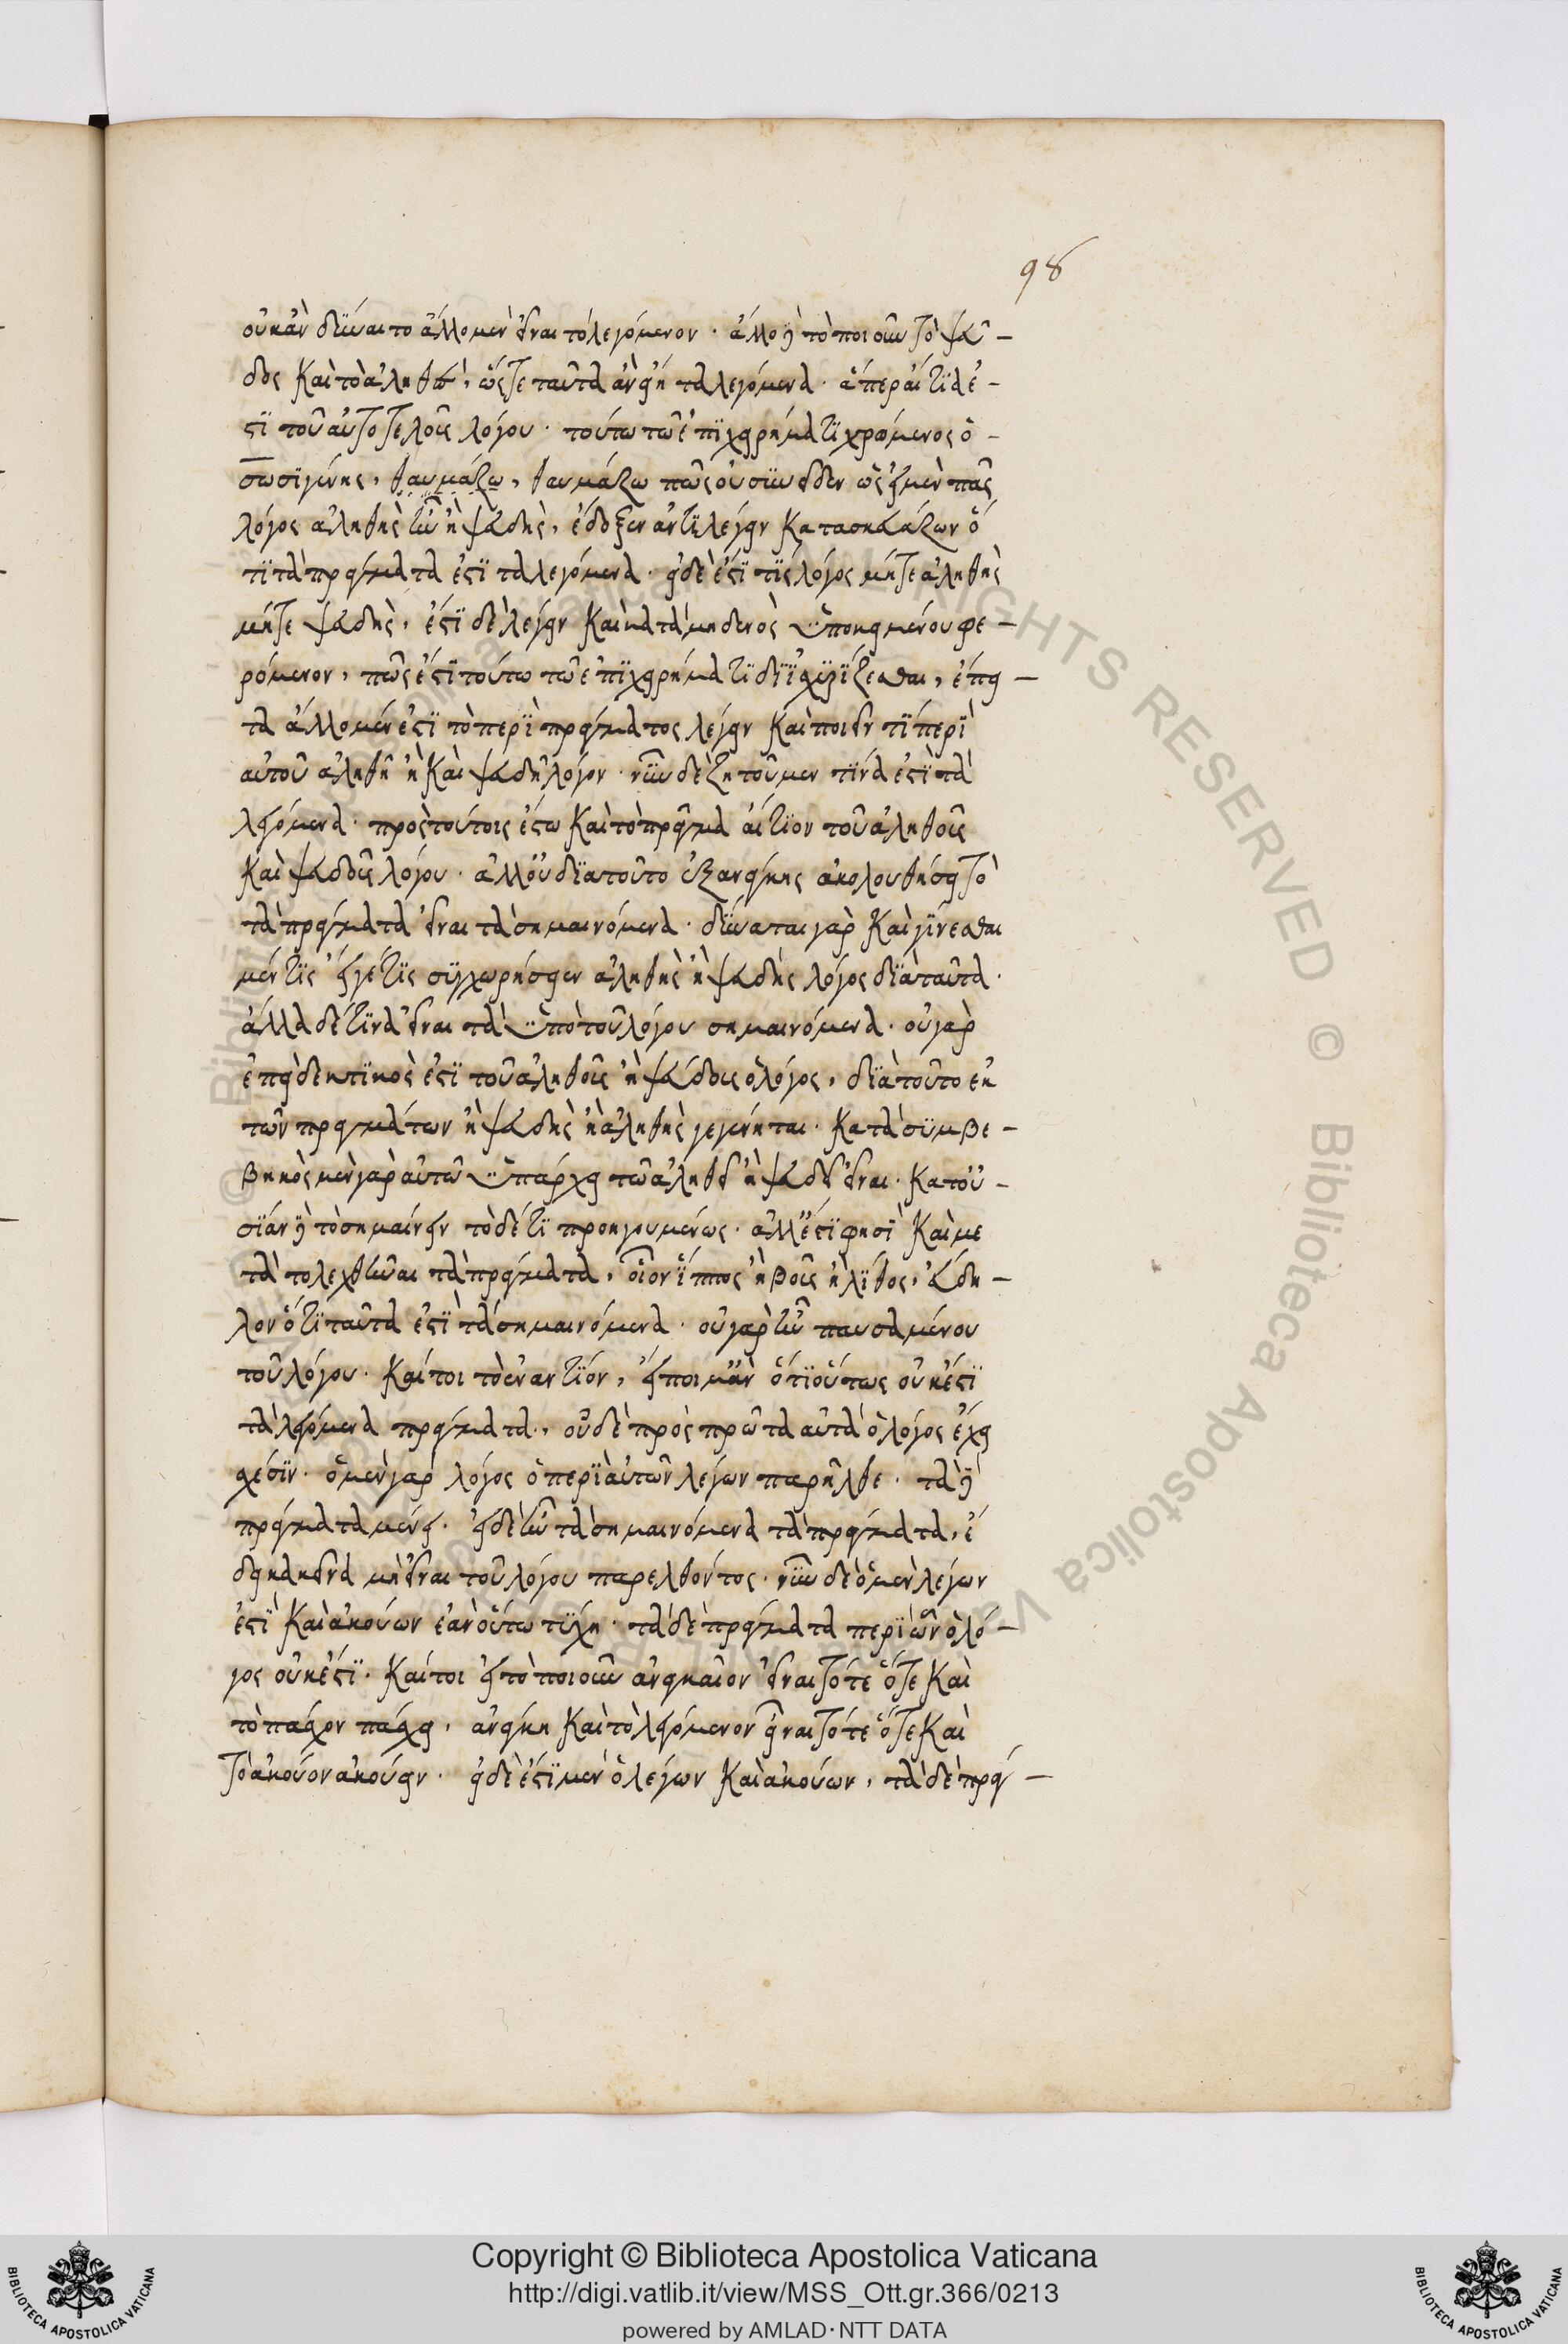 98
οὐκ ἂν δύναιτο ἄλλο μὲν εἶναι τὸ λεγόμενον · ἄλλο δὲ τὸ ποιοῦν τὸ ψεῦ –
δος καὶ τὸ ἀληθὲς, ὥστε ταῦτα ἂν εἴη τὰ λεγόμενα · ἅπερ αἴτια ἐ –
στὶ τοῦ αὐτοτελοῦς λόγου · τούτω τῶ ἐπιχειρήματι χρώμενος ὁ –
σωσιγένης, θαυμάζω, θαυμάζω πῶς οὐ συνεῖδεν ὡς εἰ μὲν πᾶς
λόγος ἀληθὴς ἦν ἢ ψευδὴς, ἔδοξεν ἄν τι λέγειν κατασκευάζων ὅ
τι τὰ πράγματα ἐστὶ τὰ λεγόμενα · εἰ δὲ ἔστι τὶς λόγος μήτε ἀληθὴς
μήτε ψευδὴς, ἔστι δὲ λέγειν καὶ κατὰ μηδενὸς ὑποκειμένου φε –
ρόμενον, πῶς ἔστι τούτω τῶ ἐπιχειρήματι διϊσχυρίζεσθαι, ἔπει –
τα ἄλλο μέν ἐστι τὸ περὶ πράγματος λέγειν καὶ ποιεῖν τι περὶ
αὐτοῦ ἀληθῆ ἢ καὶ ψευδῆ λόγον · νῦν δὲ ζητοῦμεν τίνα ἐστὶ τὰ
λεγόμενα · πρὸς τούτοις ἔστω καὶ τὸ πρᾶγμα αἴτιον τοῦ ἀληθοῦς
καὶ ψευδοῦς λόγου · ἀλλ' οὐ διὰ τοῦτο ἐξ ἀνάγκης ἀκολουθήσει τὸ
τὰ πράγματα εἶναι τὰ σημαινόμενα · δύναται γὰρ καὶ γίνεσθαι
μέν τις εἴγέ τις συγχωρήσειεν ἀληθὴς ἢ ψευδὴς λόγος διὰ ταῦτα ·
ἄλλα δέ τινα εἶναι τὰ ὑπὸ τοῦ λόγου σημαινόμενα · οὐ γὰρ
ἐπεὶ δεκτικὸς ἐστὶ τοῦ ἀληθοῦς ἢ ψεύδους ὁ λόγος, διὰ τοῦτο ἐκ
τῶν πραγμάτων ἢ ψευδὴς ἢ ἀληθὴς γεγένηται · κατὰ συμβε –
βηκὸς μὲν γὰρ αὐτῶ ὑπάρχει τῶ ἀληθεῖ ἢ ψευδεῖ εἶναι · κατ' οὐ –
σίαν δὲ τὸ σημαίνειν τὸ δέ τι προηγουμένως · ἀλλ' ἔστι φησὶ καὶ με
τὰ τὸ λεχθῆναι τὰ πράγματα, οἷον ἵππος ἢ βοῦς ἢ λίθος, εὔδη –
λον ὅτι ταῦτα ἐστὶ τὰ σημαινόμενα · οὐ γὰρ ἦν παυσαμένου
τοῦ λόγου · καίτοι τὸ ἐναντίον, εἴποιμ' ἂν ὅτι οὕτως οὐκ ἔστι
τὰ λεγόμενα πράγματα, οὐδὲ πρὸς πρῶτα αὐτὰ ὁ λόγος ἔχει
σχέσιν · ὁ μὲν γὰρ λόγος ὁ περὶ αὐτῶν λέγων παρῆλθε · τὰ δὲ
πράγματα μένει · εἰ δὲ ἦν τὰ σημαινόμενα τὰ πράγματα, ἔ
δει κἀκεῖνα μὴ εἶναι τοῦ λόγου παρελθόντος · νῦν δὲ ὁ μὲν λέγων
ἐστὶ καὶ ἀκούων ἐὰν οὕτω τύχη · τὰ δὲ πράγματα περὶ ὧν ὁ λό –
γος οὐκ ἔστι · καίτοι εἰ τὸ ποιοῦν ἀναγκαῖον εἶναι τότε ὅτε καὶ
τὸ πάσχον πάσχει, ἀνάγκη καὶ τὸ λεγόμενον εἶναι τότε ὅτε καὶ
τὸ ἀκούον ἀκούειν · εἰ δὲ ἔστι μὲν ὁ λέγων καὶ ἀκούων, τὰ δὲ πρά –
© Biblioteca Apostolica Vaticana
RIGHTS RESERVED © Biblioteca Apostolica Va
Copyright © Biblioteca Apostolica Vaticana
http://digi.vatlib.it/view/MSS_Ott.gr.366/0213
powered by AMLAD·NTT DATA
BIBLIOTECA APOSTOLICA VATICANA
BIBLIOTECA APOSTOLICA VATICANA